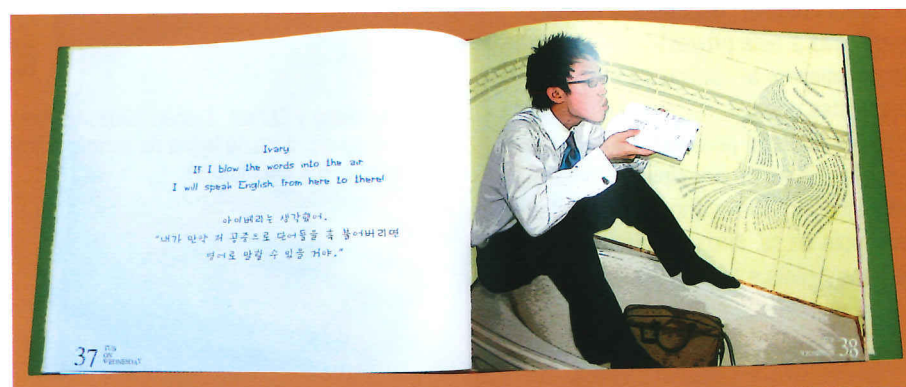 Ivary
If I blow the words into the air
I will speak English from here to there!
아이베라는 생각했어.
"내가 만약 저 공중으로 단어들을 훅 불어버리면
영어로 말할 수 있을 거야."
37
ON
WEDNESDAY
38